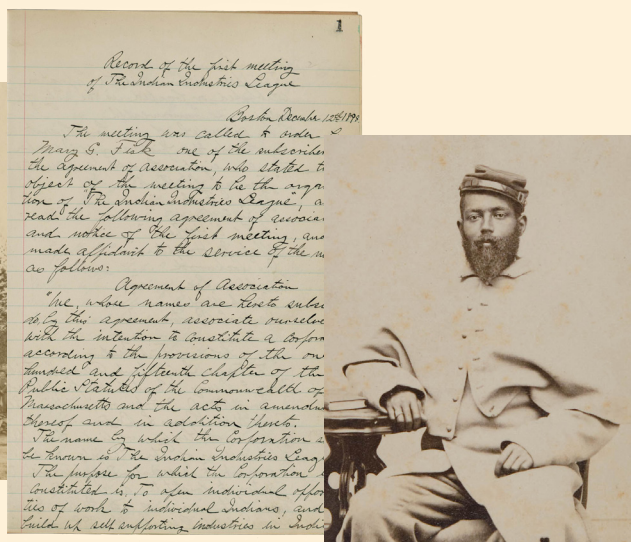 1
Record of the first meeting
of The Indian Industries League
Boston December 12th 189
The meeting was called to order
Mary G. Fisk one of the subscriber
the agreement of association, who stated t
object of the meeting to be the orga
tion of The Indian Industries League, a
read the following agreement of associa
and notice of the first meeting, and
made affidavit to the service of the n
as follows:
Agreement of Association
"We, whose names are hereto subsc
do, by this agreement, associate ourselve
with the intention to constitute a corpora
according to the provisions of the one
hundred and fifteenth chapter of the
Public Statutes of the Commonwealth of
Massachusetts and the acts in amendme
thereof and in addition thereto.
The name by which the Corporation s
be known is The Indian Industries Leag
The purpose for which the Corporation
constituted is, To open individual oppor
ties of work to individual Indians, and
build up self supporting industries in Indi